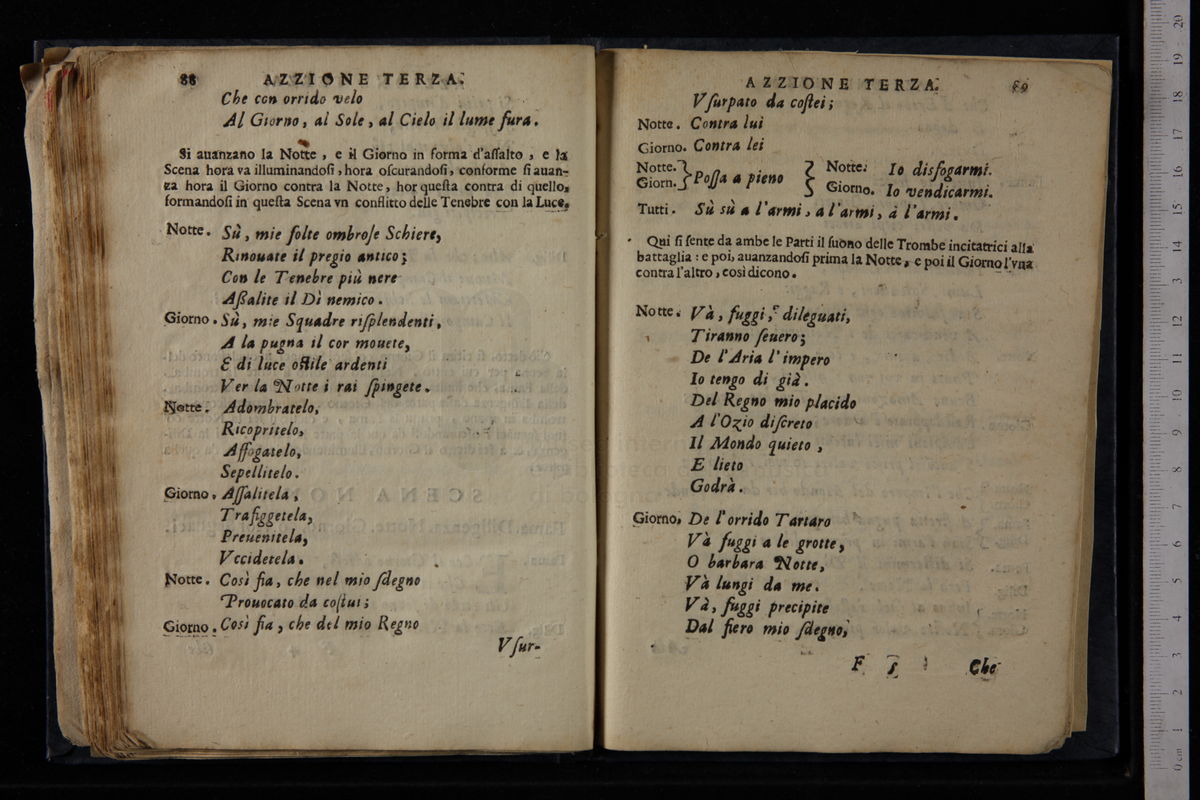 88 AZZIONE TERZA.
Che con orrido velo
Al Giorno, al Sole, al Cielo il lume fura.
Si auanzano la Notte, e il Giorno in forma d'aſſalto, e la
Scena hora va illuminandoſi, hora oſcurandoſi, conforme ſi auan-
za hora il Giorno contra la Notte, hor queſta contra di quello,
formandoſi in queſta Scena vn conflitto delle Tenebre con la Luce.
Notte. Sù, mie folte ombroſe Schiere,
Rinouate il pregio antico;
Con le Tenebre più nere
Aſsalite il Dì nemico.
Giorno. Sù, mie Squadre riſplendenti,
A la pugna il cor mouete,
E di luce oſtile ardenti
Ver la Notte i rai ſpingete.
Notte. Adombratelo,
Ricopritelo,
Affogatelo,
Sepellitelo.
Giorno. Aſſalitela,
Trafiggetela,
Preuenitela,
Vccidetela.
Notte. Così fia, che nel mio ſdegno
Prouocato da coſtui;
Giorno. Così fia, che del mio Regno
Vſur-
AZZIONE TERZA. 89
Vſurpato da coſtei;
Notte. Contra lui
Giorno. Contra lei
Notte. } Poſſa a pieno { Notte. Io disfogarmi.
Giorn. } { Giorno. Io vendicarmi.
Tutti. Sù sù a l'armi, a l'armi, à l'armi.
Qui ſi ſente da ambe le Parti il ſuono delle Trombe incitatrici alla
battaglia: e poi, auanzandoſi prima la Notte, e poi il Giorno l'vna
contra l'altro, così dicono.
Notte. Và, fuggi, dileguati,
Tiranno ſeuero;
De l'Aria l'impero
Io tengo di già.
Del Regno mio placido
A l'Ozio diſcreto
Il Mondo quieto,
E lieto
Godrà.
Giorno. De l'orrido Tartaro
Và fuggi a le grotte,
O barbara Notte,
Và lungi da me.
Và, fuggi precipite
Dal fiero mio ſdegno,
F 5 Che
20
19
18
17
16
15
14
13
12
11
10
9
8
7
6
5
4
3
2
1
0 cm